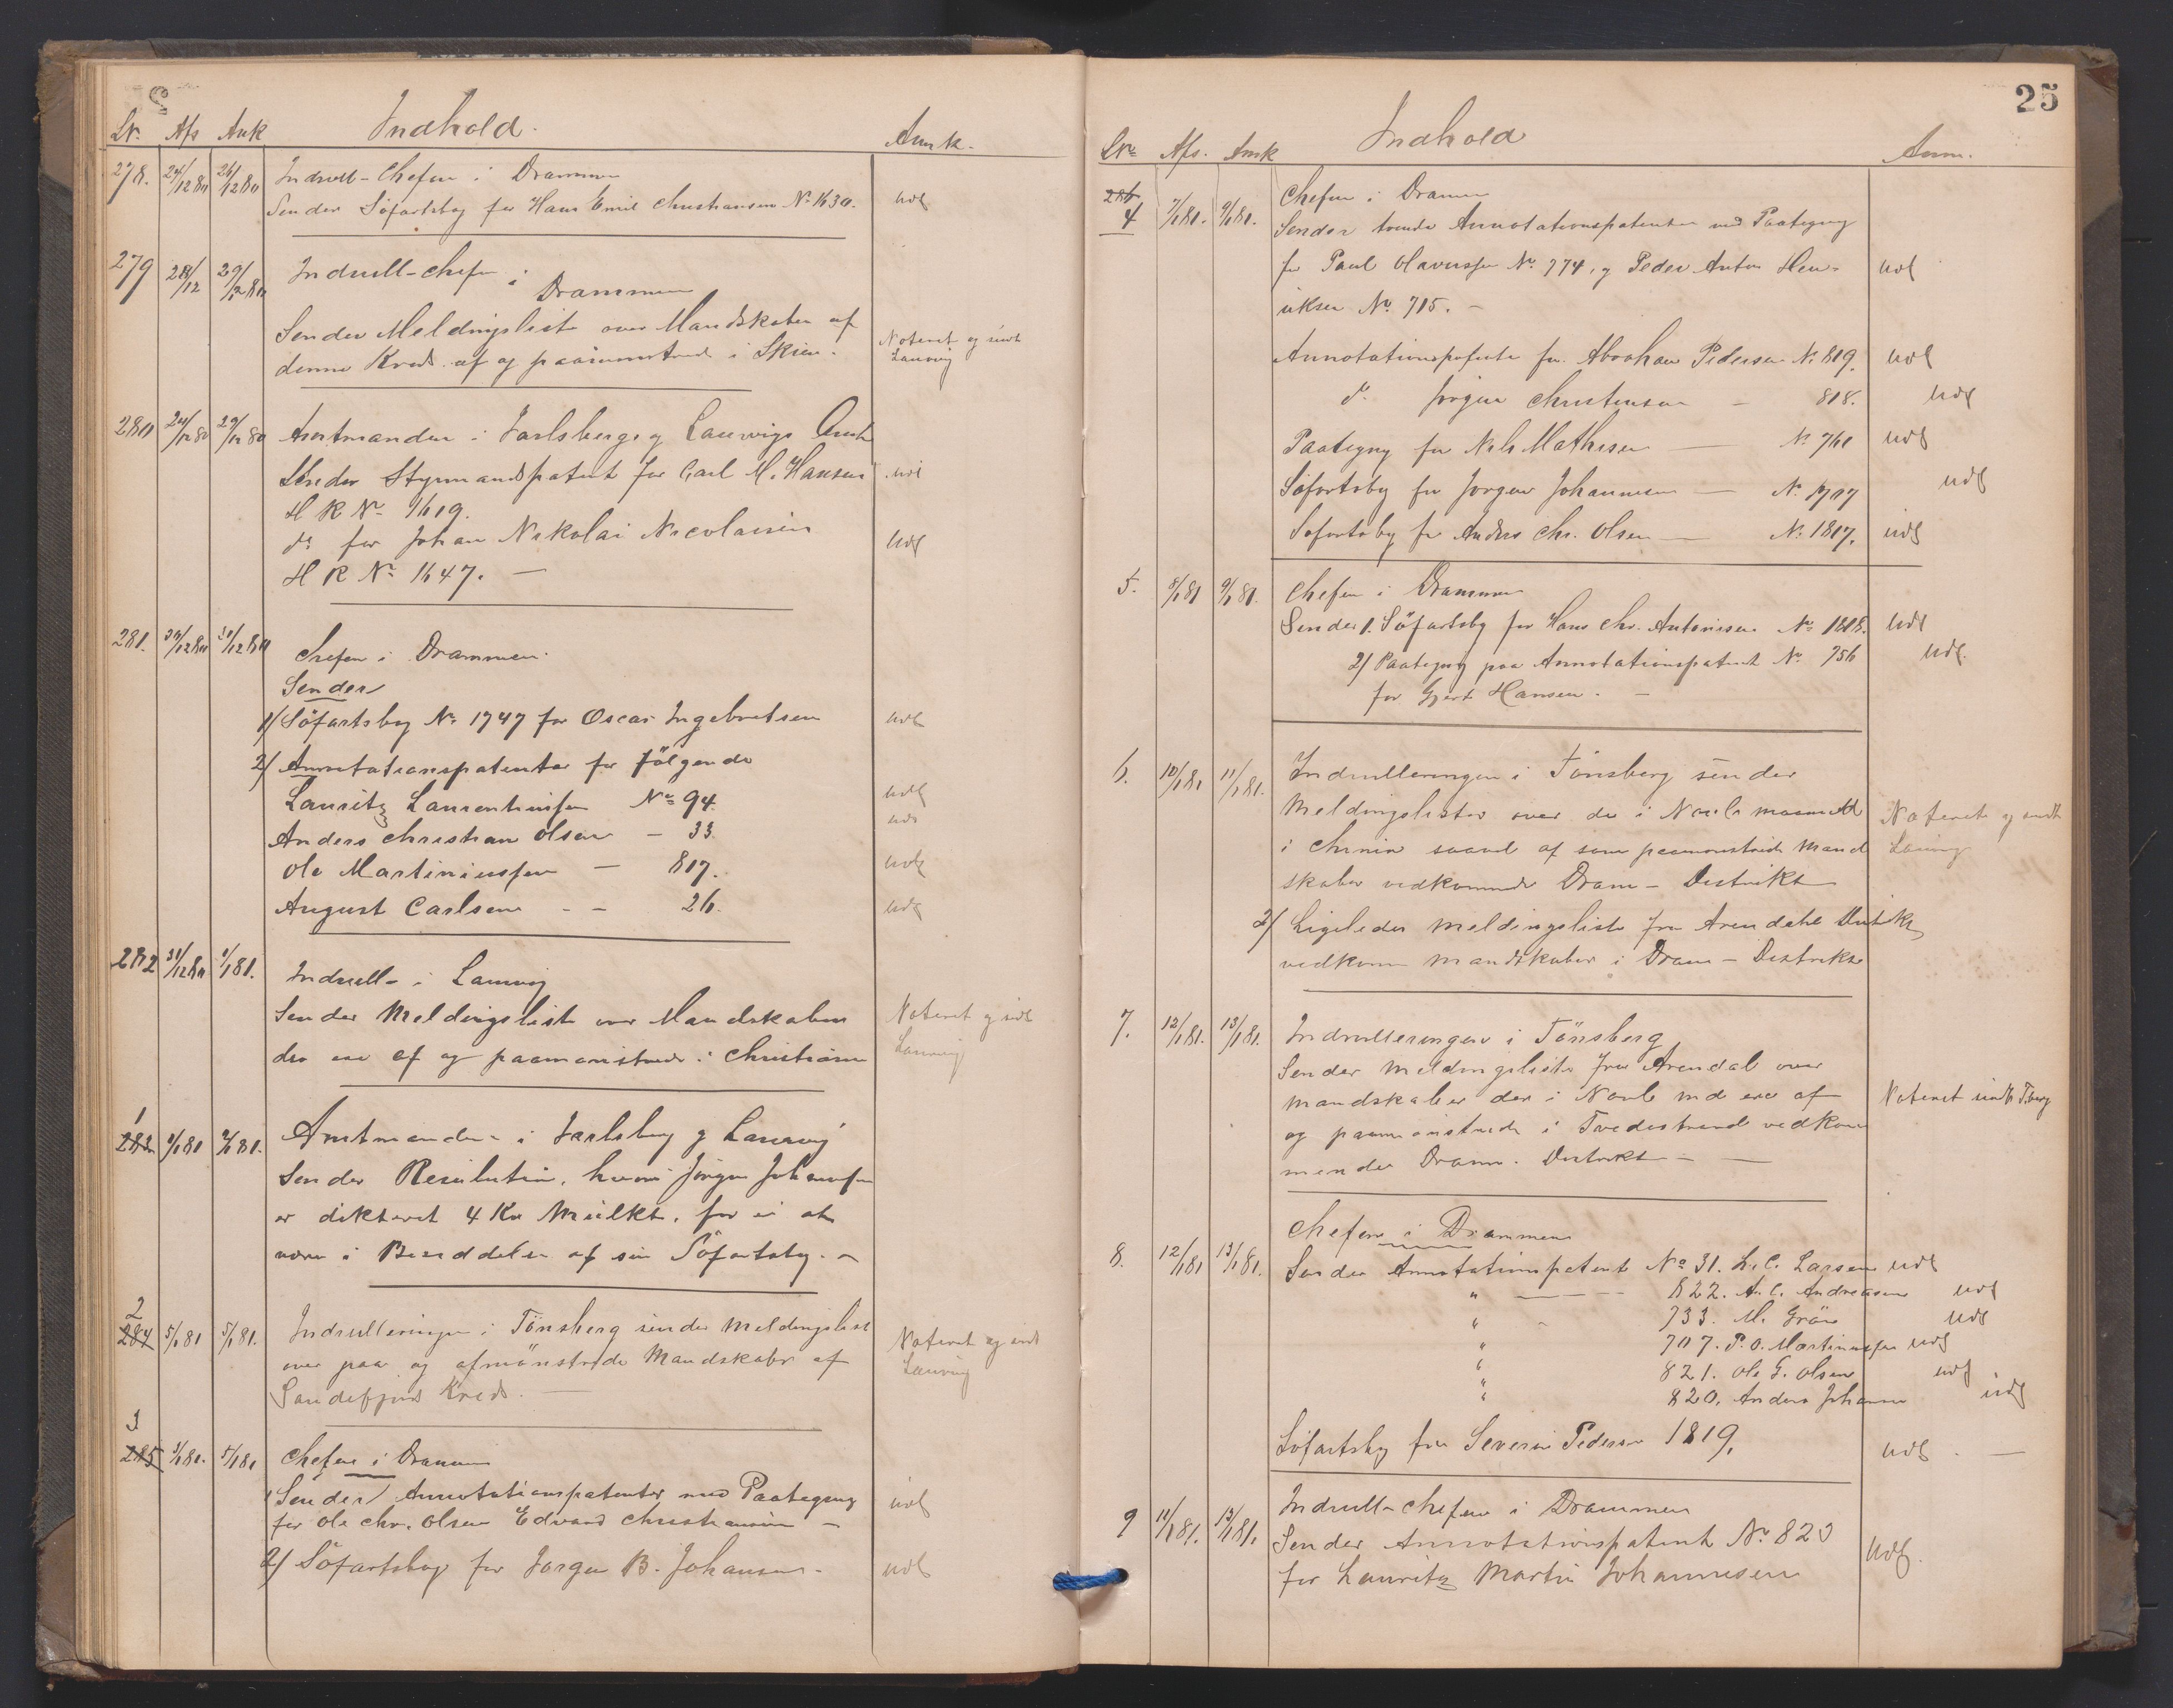 Nr. Afs Ank Indhold. Anmk.
278. 24/12 80 26/12 80 Indrull-Chefen i Drammen
Sender Söfartsbog for Hans Emil Christiansen No 1630. udl
279 28/12 29/12 80 Indrull-chefen i Drammen
Sender Meldingsliste over Mandskaber af
denne Kreds af og paamønstrede i Skien. Noteret og sendt Laurvig
280 24/12 80 29/12 80 Amtmanden i Jarlsberg og Laurvigs Amt
Sender Styrmandspatent for Carl M. Hansen udl
H R No 1619.
do for Johan Nikolai Nicolaisen udl
H R No 1647. —
281. 30/12 80 31/12 80 Chefen i Drammen.
Sender
1/ Söfartsbog No 1747 for Oscar Ingebretsen udl
2/ Annotationspatenter for følgende
Lauritz Laurentiussen No 94. udl
Anders Christian Olsen — 33 udl
Ole Martiniussen — 807. udl
August Carlsen - - 26. udl
282 31/12 80 1/1 81. Indrull- i Laurvig
Sender Meldingsliste over Mandskaber
der ere af og paamønstrede i Christiania Noteret og sendt Laurvig
1
283 1/1 81 2/1 81. Amtmanden i Jarlsberg og Laurvig
Sender Resolution, hvori Jørgen Johansen
er dikteret 4 Kr Mulkt, for ei at
være i Besiddelse af sin Söfartsbog. —
2
284 5/1 81 5/1 81. Indrulleringen i Tönsberg sender Meldingsliste
over paa og afmönstrede Mandskaber af
Sandefjord Kreds. — Noteret og sendt Laurvig
3
285 3/1 81. 5/1 81 Chefen i Drammen
1 Sender Annotationspatenter med Paategning
for Ole Chr. Olsen Edvard Christiansen — udl
2/ Söfartsbog for Jørgen B. Johansen. udl
25
Nr. Afs. Ank Indhold Anm.
286
4 7/1 81. 9/1 81. Chefen i Drammen
Sender tvende Annotationspatenter med Paategning
for Paul Olavussen No 774, og Peder Anton Hen-
riksen No 715. — udl
Annotationspatente for Abraham Pedersen No 819. udl
do Jörgen Christensen — 818. udl
Paategning for Nils Mathisen — No 761 udl
Söfartsbog for Jørgen Johannesen — No 1717 udl
Söfartsbog for Anders Chr. Olsen — No 1817. udl
5. 8/1 81 9/1 81. Chefen i Drammen
Sender 1. Söfartsbog for Hans Chr. Antonisen No 1818. udl
2/ Paategning paa Annotationspatent No 756
for Gjert Hansen. — udl.
6. 10/1 81 11/1 81. Indrulleringen i Tönsberg sender
Meldingslister over de i Novbr maaned
i Chinia saavel af som paamønstrede Mand
skaber vedkommende Dram- Distrikt Noteret og sendt Laurvig
2/ Ligeledes Meldingsliste fra Arendahl Distrikt
vedkom mandskaber i Dram- Distrikt
7. 12/1 81. 13/1 81. Indrulleringen i Tönsberg
Sender Meldingsliste fra Arendal over
Mandskaber der i Novb md ere af
og paamönstrede i Tvedestrand vedkom
mende Dram. Distrikt — — Noteret sendt Tberg
8. 12/1 81 13/1 81. Chefen i Drammen
Sender Annotationspatent No 31. L. C. Larsen udl
" — 822. A. C. Andreasen udl
" - 733. M. Grön udl
" 707. P. O. Martinussen udl
" 821. Ole G. Olsen udl
" 820. Anders Johansen udl
Söfartsbog for Severin Pedersen 1819. udl. —
9 11/1 81. 13/1 81. Indrull-chefen i Drammen
Sender Annotationspatent No 823
for Lauritz Martin Johannesen udl.